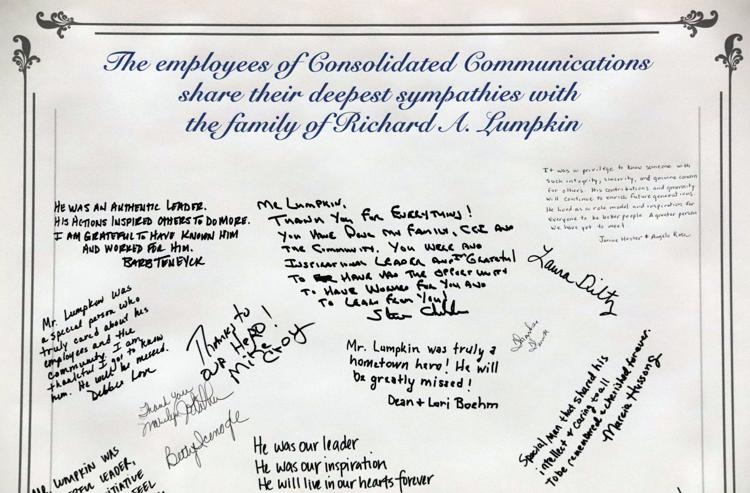 The employees of Consolidated Communications
share their deepest sympathies with
the family of Richard A. Lumpkin
It was a privilege to know someone with
such integrity, sincerity, and genuine concern
for others. His contributions and generosity
will continue to enrich future generations.
He lived as a role model and inspiration for
everyone to be better people. A greater person
we have yet to meet.
Janice Hester & Angela Rose
HE WAS AN AUTHENTIC LEADER.
HIS ACTIONS INSPIRED OTHERS TO DO MORE.
I AM GRATEFUL TO HAVE KNOWN HIM
AND WORKED FOR HIM.
BARB TENEYCK
MR. LUMPKIN,
THANK YOU FOR EVERYTHING!
YOU HAVE DONE MY FAMILY, CCI AND
THE COMMUNITY. YOU WERE AN
INSPIRATIONAL LEADER AND I'M GRATEFUL
TO HAVE HAD THE OPPORTUNITY
TO HAVE WORKED FOR YOU AND
TO LEARN FROM YOU!
Laura Dilty
Mr. Lumpkin was
a special person who
truly cared about his
employees and the
community. I am
thankful I got to know
him. He will be missed.
Debbie Love
THANKS TO
OUR HERO!
MIKE CROY
Mr. Lumpkin was truly a
hometown hero! He will
be greatly missed!
Dean & Lori Boehm
Special Man that shared his
intellect & caring to all
To be remembered & cherished forever.
Marcia Hussong
Thank you
Betty Icenogle
He was our leader
He was our inspiration
He will live in our hearts forever
MR. LUMPKIN WAS
LEADER,